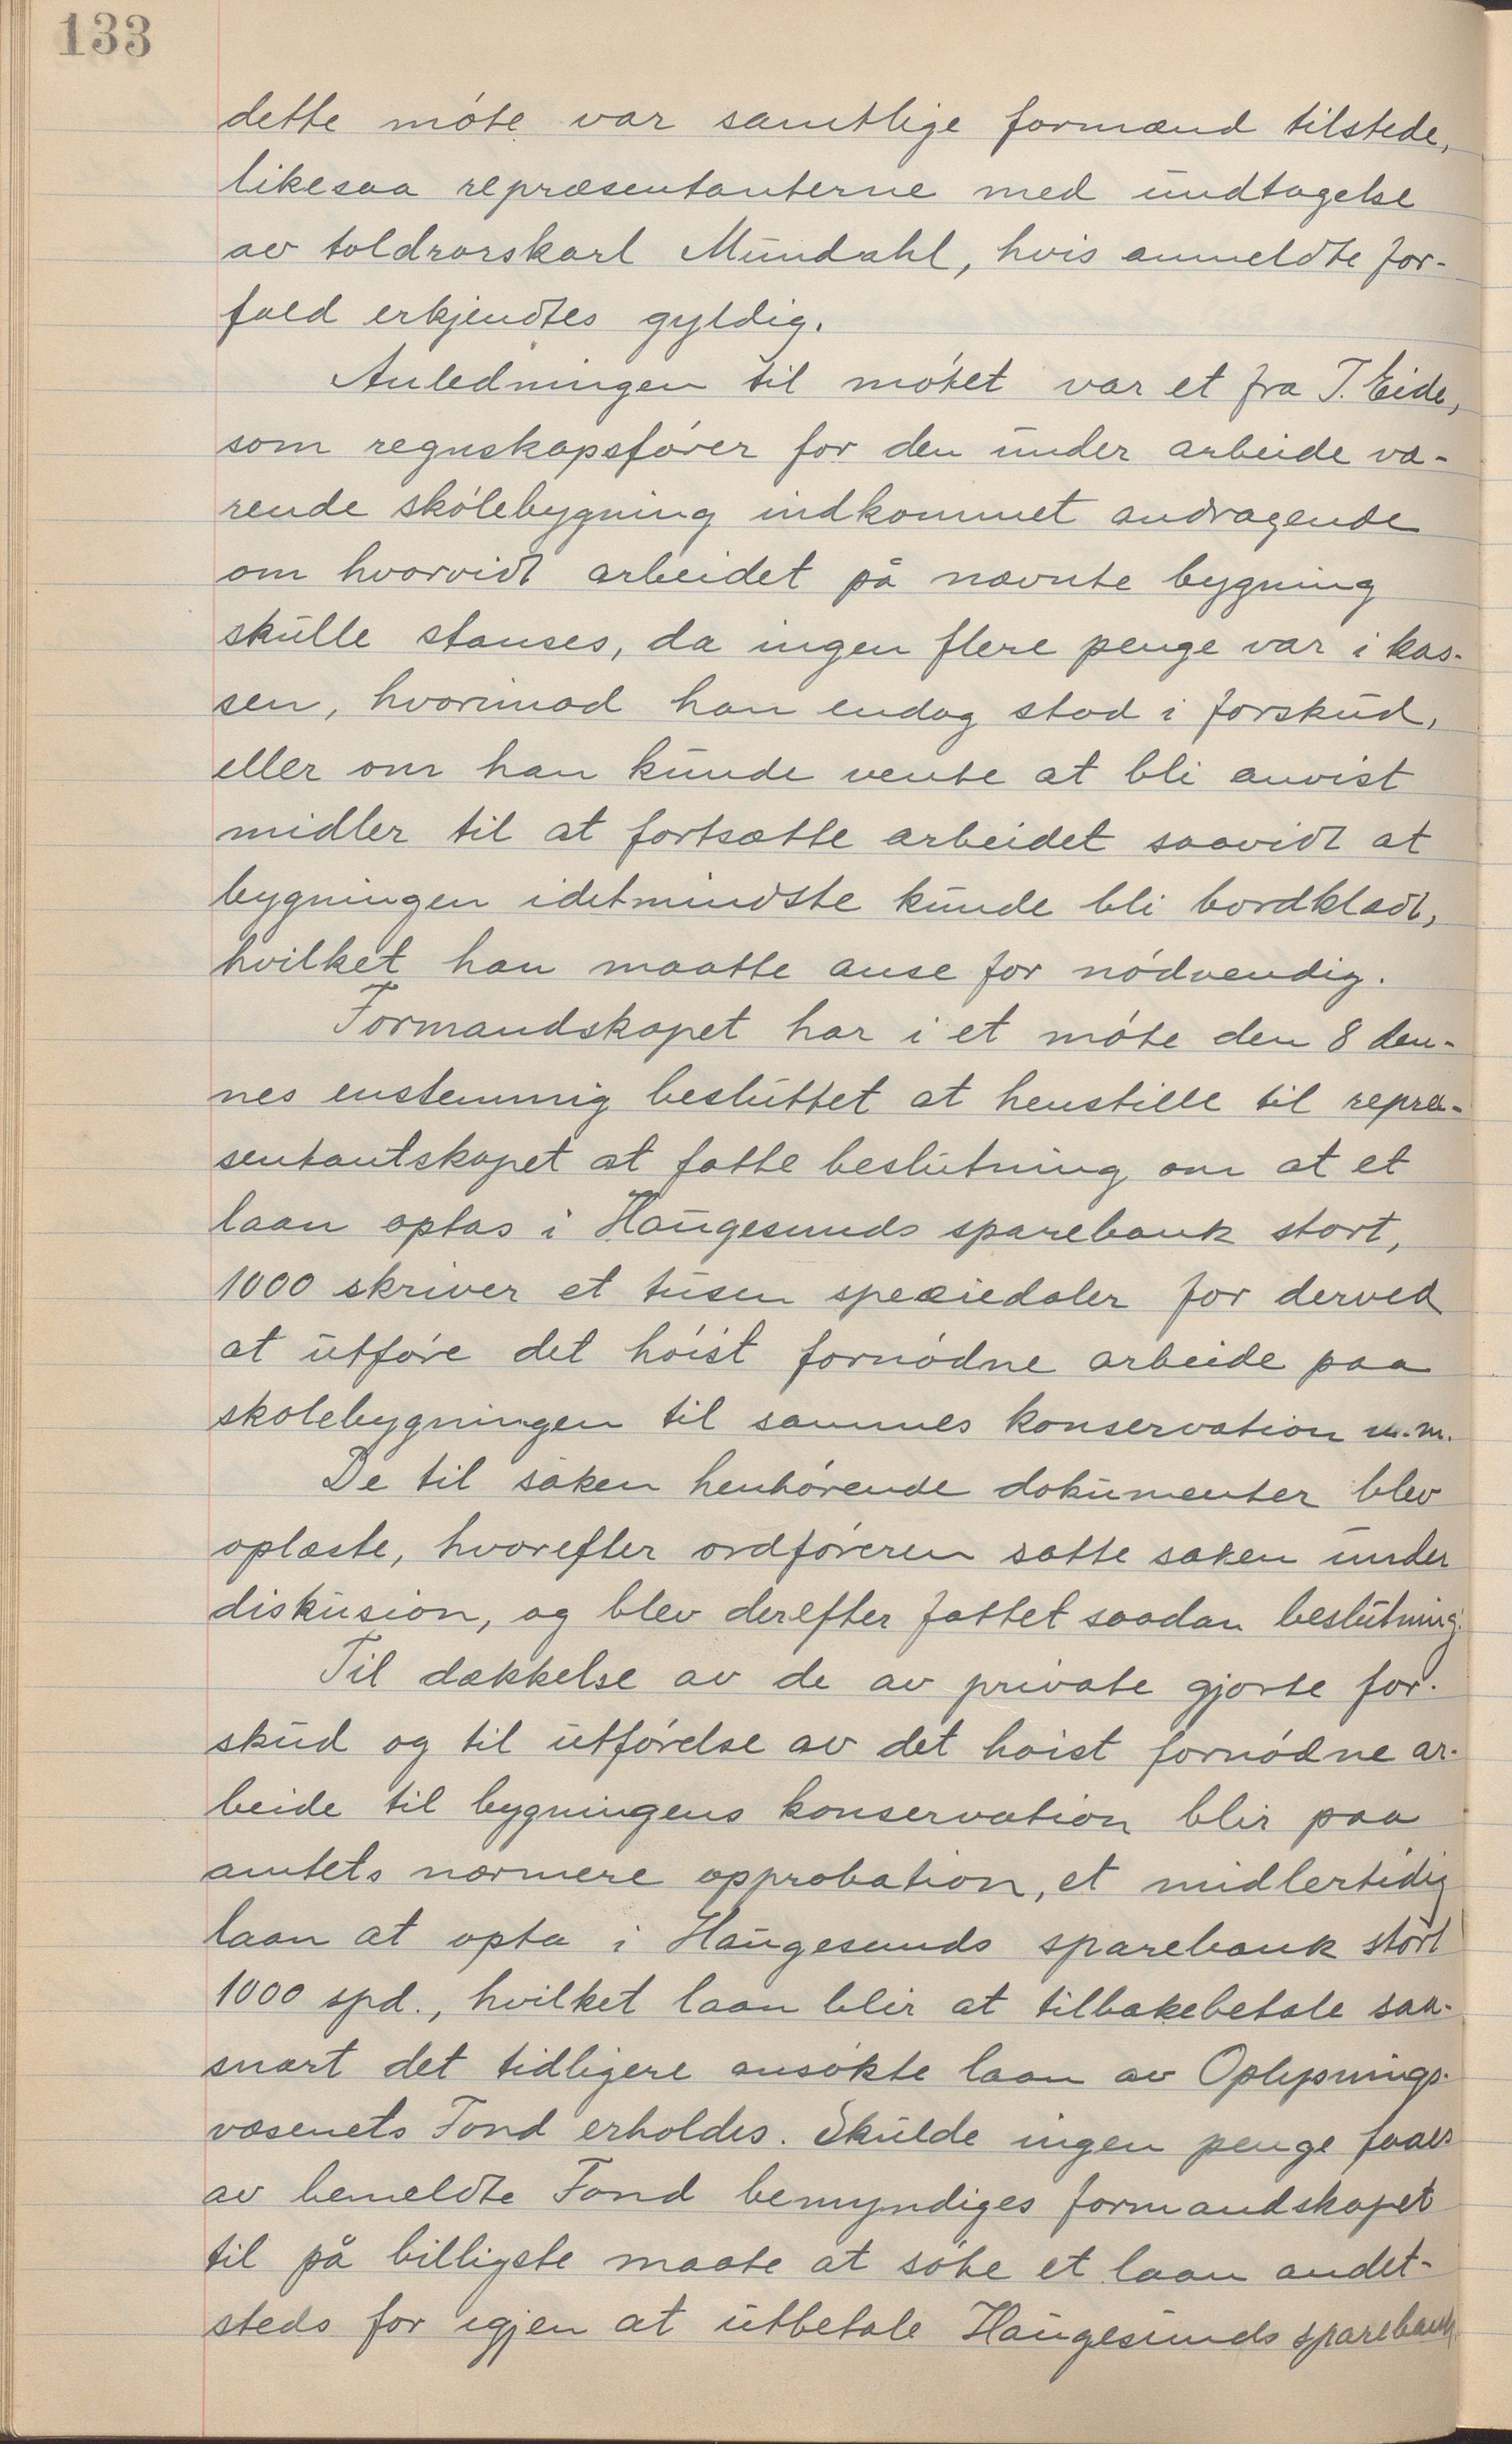 133
dette møte var samtlige formænd tilstede,
likesaa repræsentanterne med undtagelse
av toldrorskarl Mundahl, hvis anmeldte for-
fald erkjendtes gyldig.
Anledningen til møtet var et fra T. Eide,
som regnskapsfører for den under arbeide væ-
rende skolebygning indkommet andragende
om hvorvidt arbeidet på nævnte bygning
skulle stanses, da ingen flere penge var i kas-
sen, hvorimod han endog stod i forskud,
eller om han kunde vente at bli anvist
midler til at fortsætte arbeidet saavidt at
bygningen idetmindste kunde bli bordklædt,
hvilket han maatte anse for nødvendig.
Formandskapet har i et møte den 8 den-
nes enstemmig besluttet at henstille til repræ-
sentantskapet at fatte beslutning om at et
laan optas i Haugesunds sparebank stort,
1000 skriver et tusen speciedaler for derved
at utføre det høist fornødne arbeide paa
skolebygningen til sammes konservation m.m.
De til saken henhørende dokumenter blev
oplæste, hvorefter ordføreren satte saken under
diskusion, og blev derefter fattet saadan beslutning:
Til dækkelse av de av private gjorte for-
skud og til utførelse av det høist fornødne ar-
beide til bygningens konservation blir paa
amtets nærmere approbation, et midlertidig
laan at opta i Haugesunds sparebank stort
1000 spd., hvilket laan blir at tilbakebetale saa-
snart det tidligere ansøkte laan av Oplysnings-
væsenets Fond erholdes. Skulde ingen penge faaes
av bemeldte Fond bemyndiges formandskapet
til på billigste maate at søke et laan andet-
steds for igjen at utbetale Haugesunds sparebank